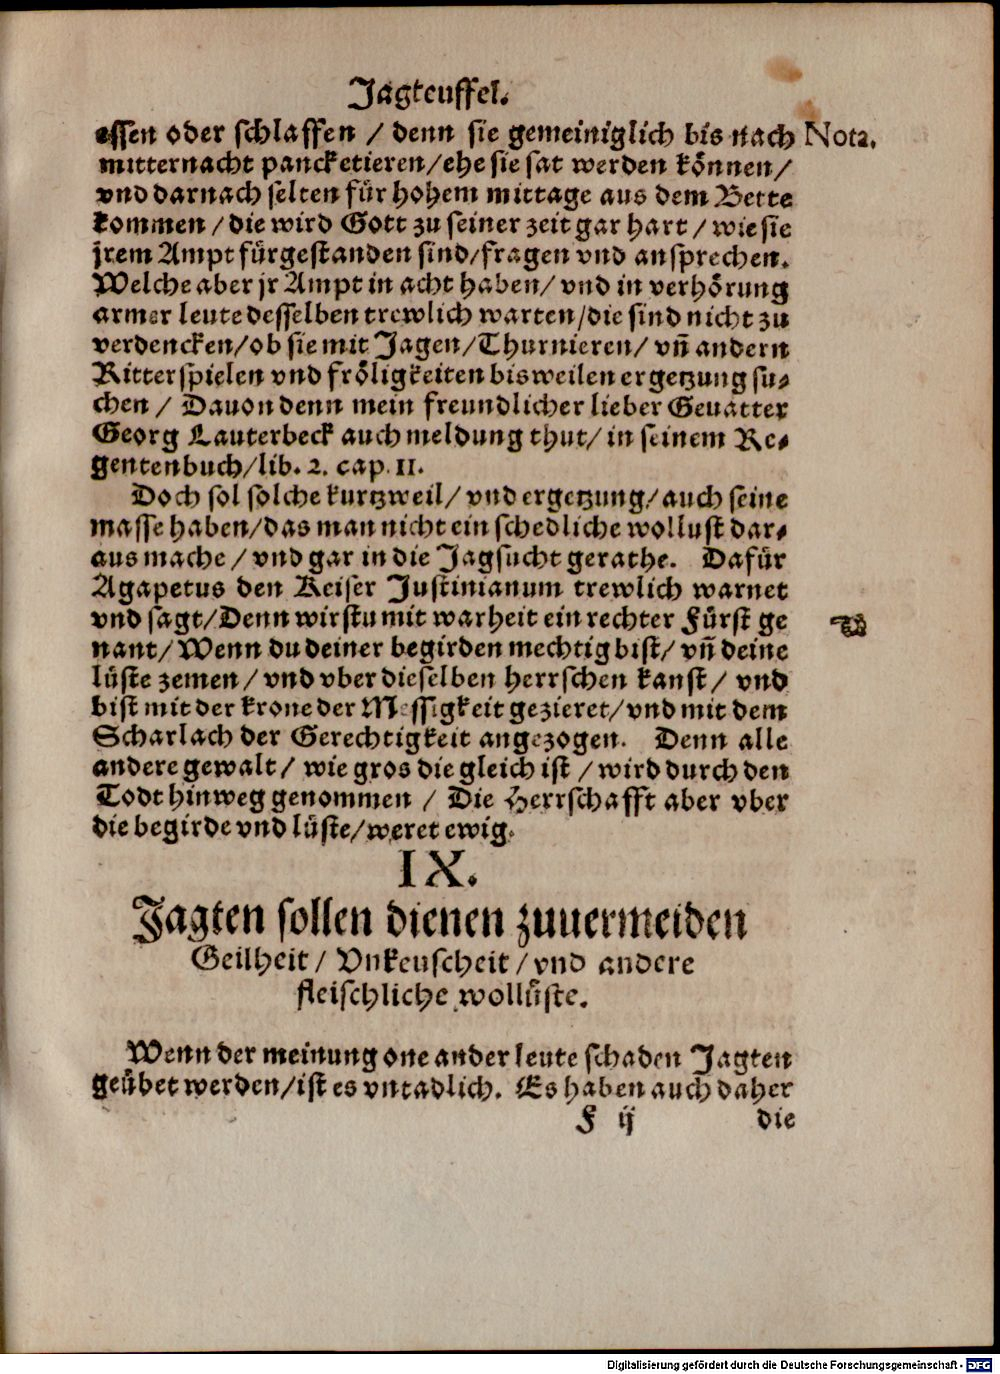 Jagteuffel.
essen oder schlaffen / denn sie gemeiniglich bis nach Nota.
mitternacht pancketieren/ehe sie sat werden können/
vnd darnach selten für hohem mittage aus dem Bette
kommen / die wird Gott zu seiner zeit gar hart / wie sie
jrem Ampt fürgestanden sind/fragen vnd ansprechen.
Welche aber jr Ampt in acht haben/ vnd in verhörung
armer leute desselben trewlich warten/die sind nicht zu
verdencken/ob sie mit Jagen/Thurnieren/ vn̄ andern
Ritterspielen vnd fröligkeiten bisweilen ergetzung su⸗
chen / Dauon denn mein freundlicher lieber Geuatter
Georg Lauterbeck auch meldung thut/ in seinem Re⸗
gentenbuch/lib. 2. cap. 11.
Doch sol solche kurtzweil/ vnd ergetzung/ auch seine
masse haben/das man nicht ein schedliche wollust dar⸗
aus mache / vnd gar in die Jagsucht gerathe. Dafür
Agapetus den Keiser Justinianum trewlich warnet
vnd sagt/Denn wirstu mit warheit ein rechter Fürst ge
nant/ Wenn du deiner begirden mechtig bist/ vn̄ deine
lüste zemen / vnd vber dieselben herrschen kanst / vnd
bist mit der krone der Messigkeit gezieret/vnd mit dem
Scharlach der Gerechtigkeit angezogen. Denn alle
andere gewalt / wie gros die gleich ist / wird durch den
Todt hinweg genommen / Die Herrschafft aber vber
die begirde vnd lüste/weret ewig.
IX.
Jagten sollen dienen zuuermeiden
Geilheit / Vnkeuscheit / vnd andere
fleischliche wollüste.
Wenn der meinung one ander leute schaden Jagten
geübet werden/ist es vntadlich. Es haben auch daher
F ij die
Digitalisierung gefördert durch die Deutsche Forschungsgemeinschaft - DFG